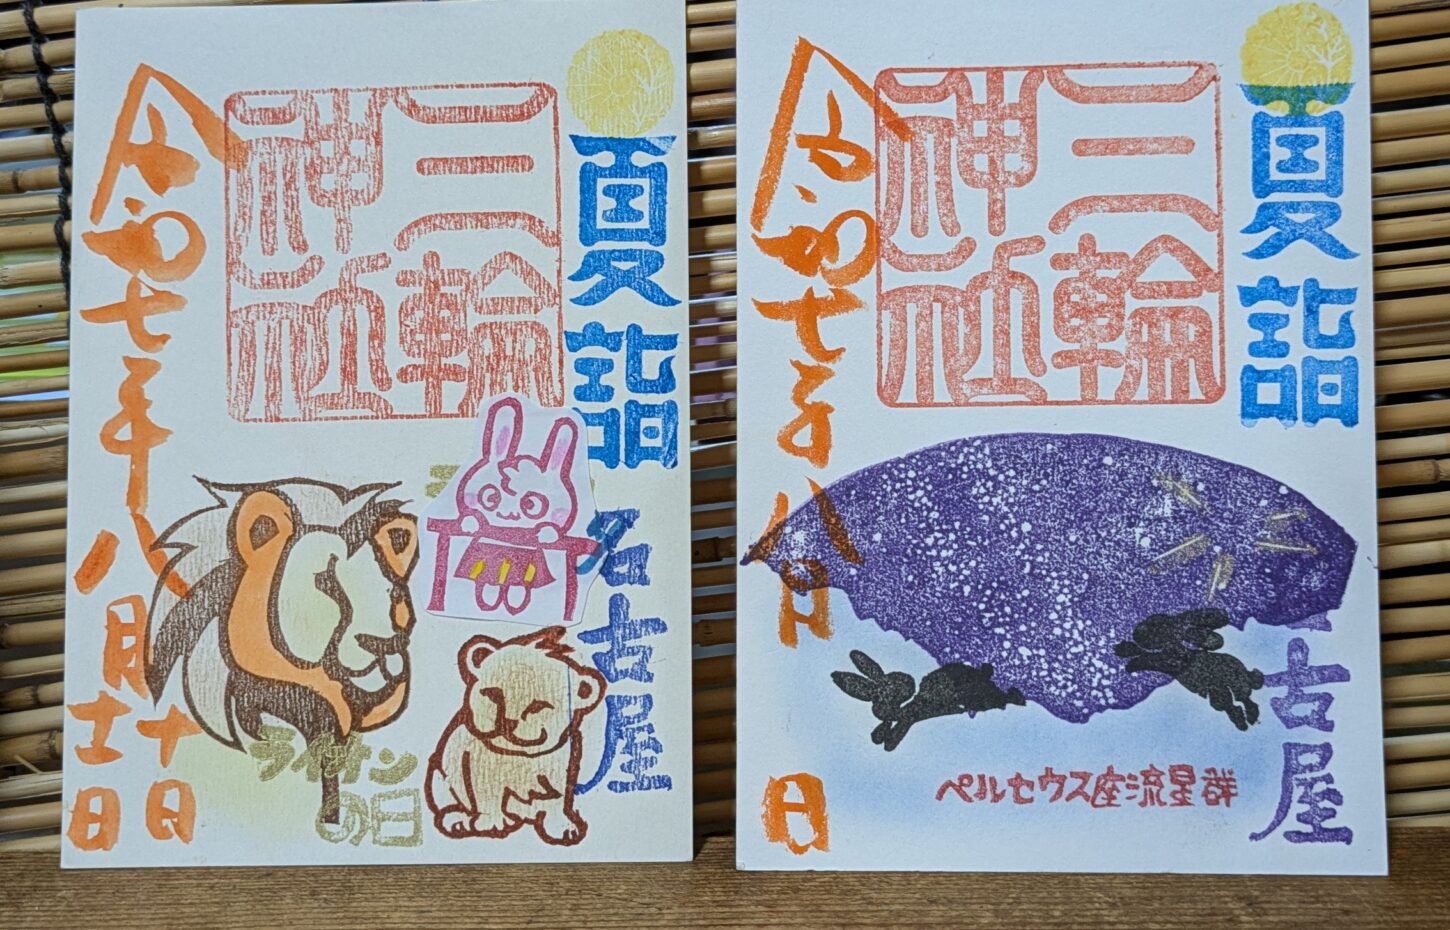 夏詣
名古屋
三輪
神社
ライオン
の日
令和七年八月
十日
十一日
夏詣
古屋
三輪
神社
ペルセウス座流星群
令和七年八月
日